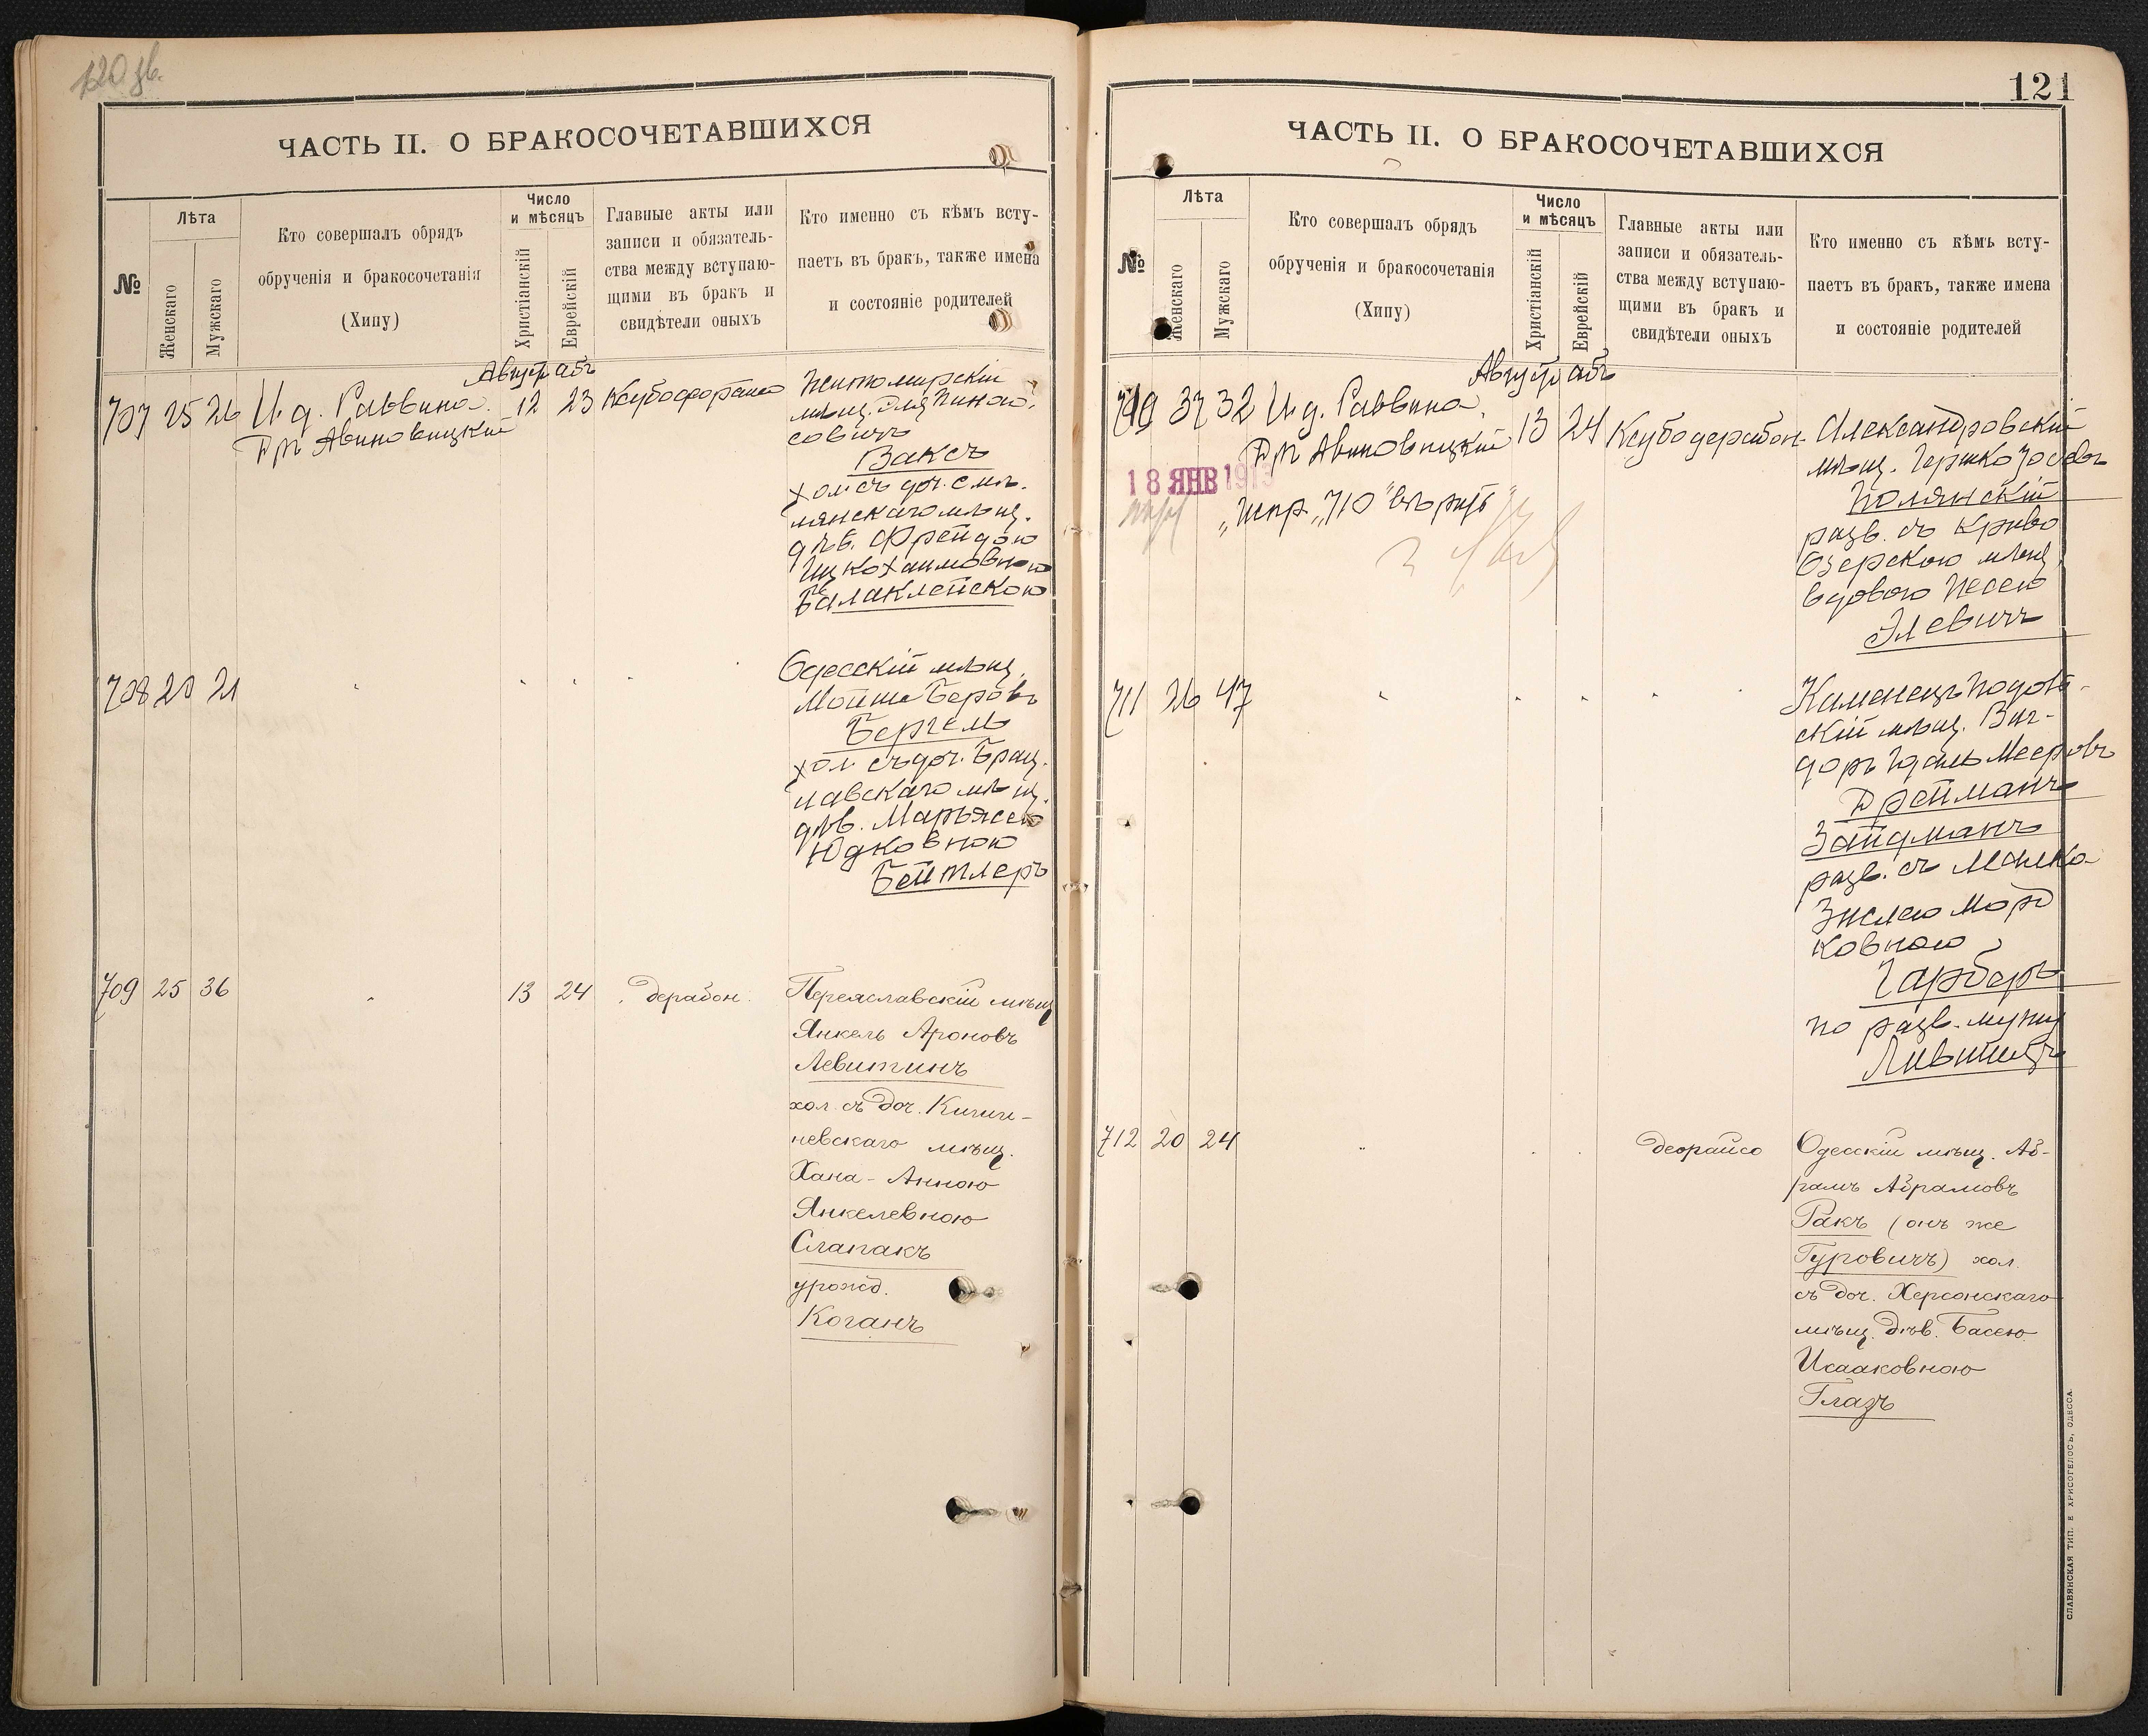 120 зв.
ЧАСТЬ II. О БРАКОСОЧЕТАВШИХСЯ
№
Лѣта
Женскаго
Мужскаго
Кто совершалъ обрядъ
обрученія и бракосочетанія
(Хипу)
Число
и мѣсяцъ
Христіанскій
Еврейскій
Главные акты или
записи и обязатель-
ства между вступаю-
щими въ бракъ и
свидѣтели оныхъ
Кто именно съ кѣмъ всту-
паетъ въ бракъ, также имена
и состояніе родителей
Август абъ
707 25 26 И. д. Раввина 12 23
Д-ръ Авиновицкій
Житомирскій
мѣщ.
Ваксъ
хол съ доч. Смѣ-
лянскаго мѣщ.
дѣв. Фрейдою
Ицкохаимовною
Балаклейскою
708 20 21
Одесскій мѣщ.
Мойше Беровъ
Бергель
хол. съ доч. Брац-
лавскаго мѣщ.
дѣв. Марьясею
Юдковною
Бейтлеръ
709 25 36 13 24 дерабон.
Переяславскій мѣщ
Янкель Ароновъ
Левитинъ
хол. съ доч. Киши-
невскаго мѣщ.
Хана-Анною
Янкелевною
Слапакъ
урожд.
Коганъ
121
ЧАСТЬ II. О БРАКОСОЧЕТАВШИХСЯ
№
Лѣта
Женскаго
Мужскаго
Кто совершалъ обрядъ
обрученія и бракосочетанія
(Хипу)
Число
и мѣсяцъ
Христіанскій
Еврейскій
Главные акты или
записи и обязатель-
ства между вступаю-
щими въ бракъ и
свидѣтели оныхъ
Кто именно съ кѣмъ всту-
паетъ въ бракъ, также имена
и состояніе родителей
Август абъ
710 37 32 И. д. Раввина 13 24
Д-ръ Авиновицкій
18 ЯНВ 1913
„Испр. „710"
Александровскій
мѣщ. Гершко Іосевъ
Полянскій
разв. съ Криво
Озерскою мѣщ.
вдовою Песею
Элевичъ
711 26 47
Каменецъ Подоль-
скій мѣщ. Виг-
доръ Юдель Мееровъ
Дрейманъ
Зайдманъ
разв. съ Малка
Знслею Морд
ковною
Гарберъ
по разв. мужу
Лившицъ
712 20 24 деорайсо
Одесскій мѣщ. Аб-
рамъ Абрамовъ
Ракъ (онъ же
Гуровичъ) хол.
съ доч. Херсонскаго
мѣщ. дѣв. Басею
Исааковною
Глазъ
СЛАВЯНСКАЯ ТИП. Е ХРИСОГЕЛОСЪ, ОДЕССА.